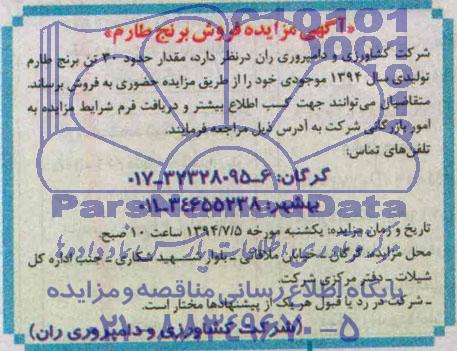 «آگهی مزایده فروش برنج طارم»
شرکت کشاورزی و دامپروری ران درنظر دارد، مقدار حدود ۳۰ تن برنج طارم
تولیدی سال ۱۳۹۴ موجودی خود را از طریق مزایده حضوری به فروش برساند.
متقاضیان می‌توانند جهت کسب اطلاع بیشتر و دریافت فرم شرایط مزایده به
امور بازرگانی شرکت به آدرس ذیل مراجعه فرمایند.
تلفن‌های تماس:
گرگان: ۶-۳۲۳۲۸۰۹۵-۰۱۷
بهشهر: ۳۴۶۵۵۲۳۸-۰۱۱
تاریخ و زمان مزایده: یکشنبه مورخه ۱۳۹۴/۷/۵ ساعت ۱۰ صبح.
محل مزایده: گرگان - خیابان ملاقاتی - بلوار شهید جنب اداره کل
شیلات - دفتر مرکزی شرکت.
- شرکت در رد یا قبول هر یک از پیشنهادها مختار است.
(شرکت کشاورزی و دامپروری ران)
ParsNamadData
پایگاه اطلاع رسانی مناقصه و مزایده
۰۲۱-۸۸۳۴۹۶۷۰-۵